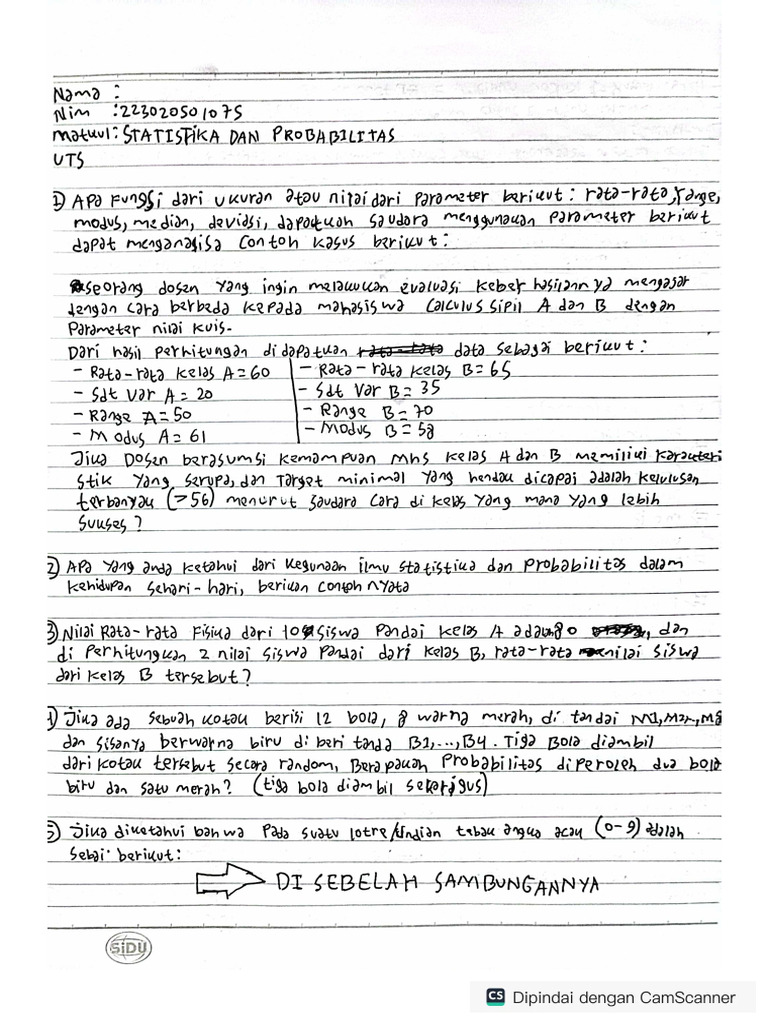 Nama :
Nim : 223020501075
Matkul : STATISTIKA DAN PROBABILITAS
UTS
1) Apa Fungsi dari ukuran atau nilai dari Parameter berikut : rata-rata, range,
modus, median, deviasi, dapatkah saudara menggunakan parameter berikut
dapat menganalisa contoh kasus berikut :
seorang dosen yang ingin melakukan evaluasi keberhasilannya mengajar
dengan cara berbeda kepada mahasiswa Calculus Sipil A dan B dengan
Parameter nilai kuis.
Dari hasil perhitungan didapatkan data sebagai berikut :
- Rata-rata kelas A = 60
- Sdt Var A = 20
- Range A = 50
- Modus A = 61
- Rata-rata kelas B = 65
- Sdt Var B = 35
- Range B = 70
- Modus B = 58
Jika Dosen berasumsi kemampuan Mhs kelas A dan B memiliki karakteri
stik yang serupa, dan Target minimal yang hendak dicapai adalah kelulusan
terbanyak (>56) menurut saudara cara di kelas yang mana yang lebih
sukses ?
2) Apa yang anda ketahui dari kegunaan ilmu statistika dan probabilitas dalam
kehidupan sehari-hari, berikan contoh nyata
3) Nilai Rata-rata Fisika dari 10 siswa Pandai kelas A dan
di Perhitungkan 2 nilai siswa pandai dari kelas B, rata-rata nilai siswa
dari kelas B tersebut ?
4) Jika ada sebuah kotak berisi 12 bola, 8 warna merah, di tandai M1, M2, M8
dan sisanya berwarna biru di beri tanda B1,...,B4. Tiga Bola diambil
dari kotak tersebut secara random, Berapakah Probabilitas diperoleh dua bola
biru dan satu merah ? (tiga bola diambil sekaligus)
5) Jika diketahui bahwa Pada suatu lotre/undian tebak angka acak (0-9) adalah
sebai berikut :
DI SEBELAH SAMBUNGANNYA
SiDU
CS Dipindai dengan CamScanner